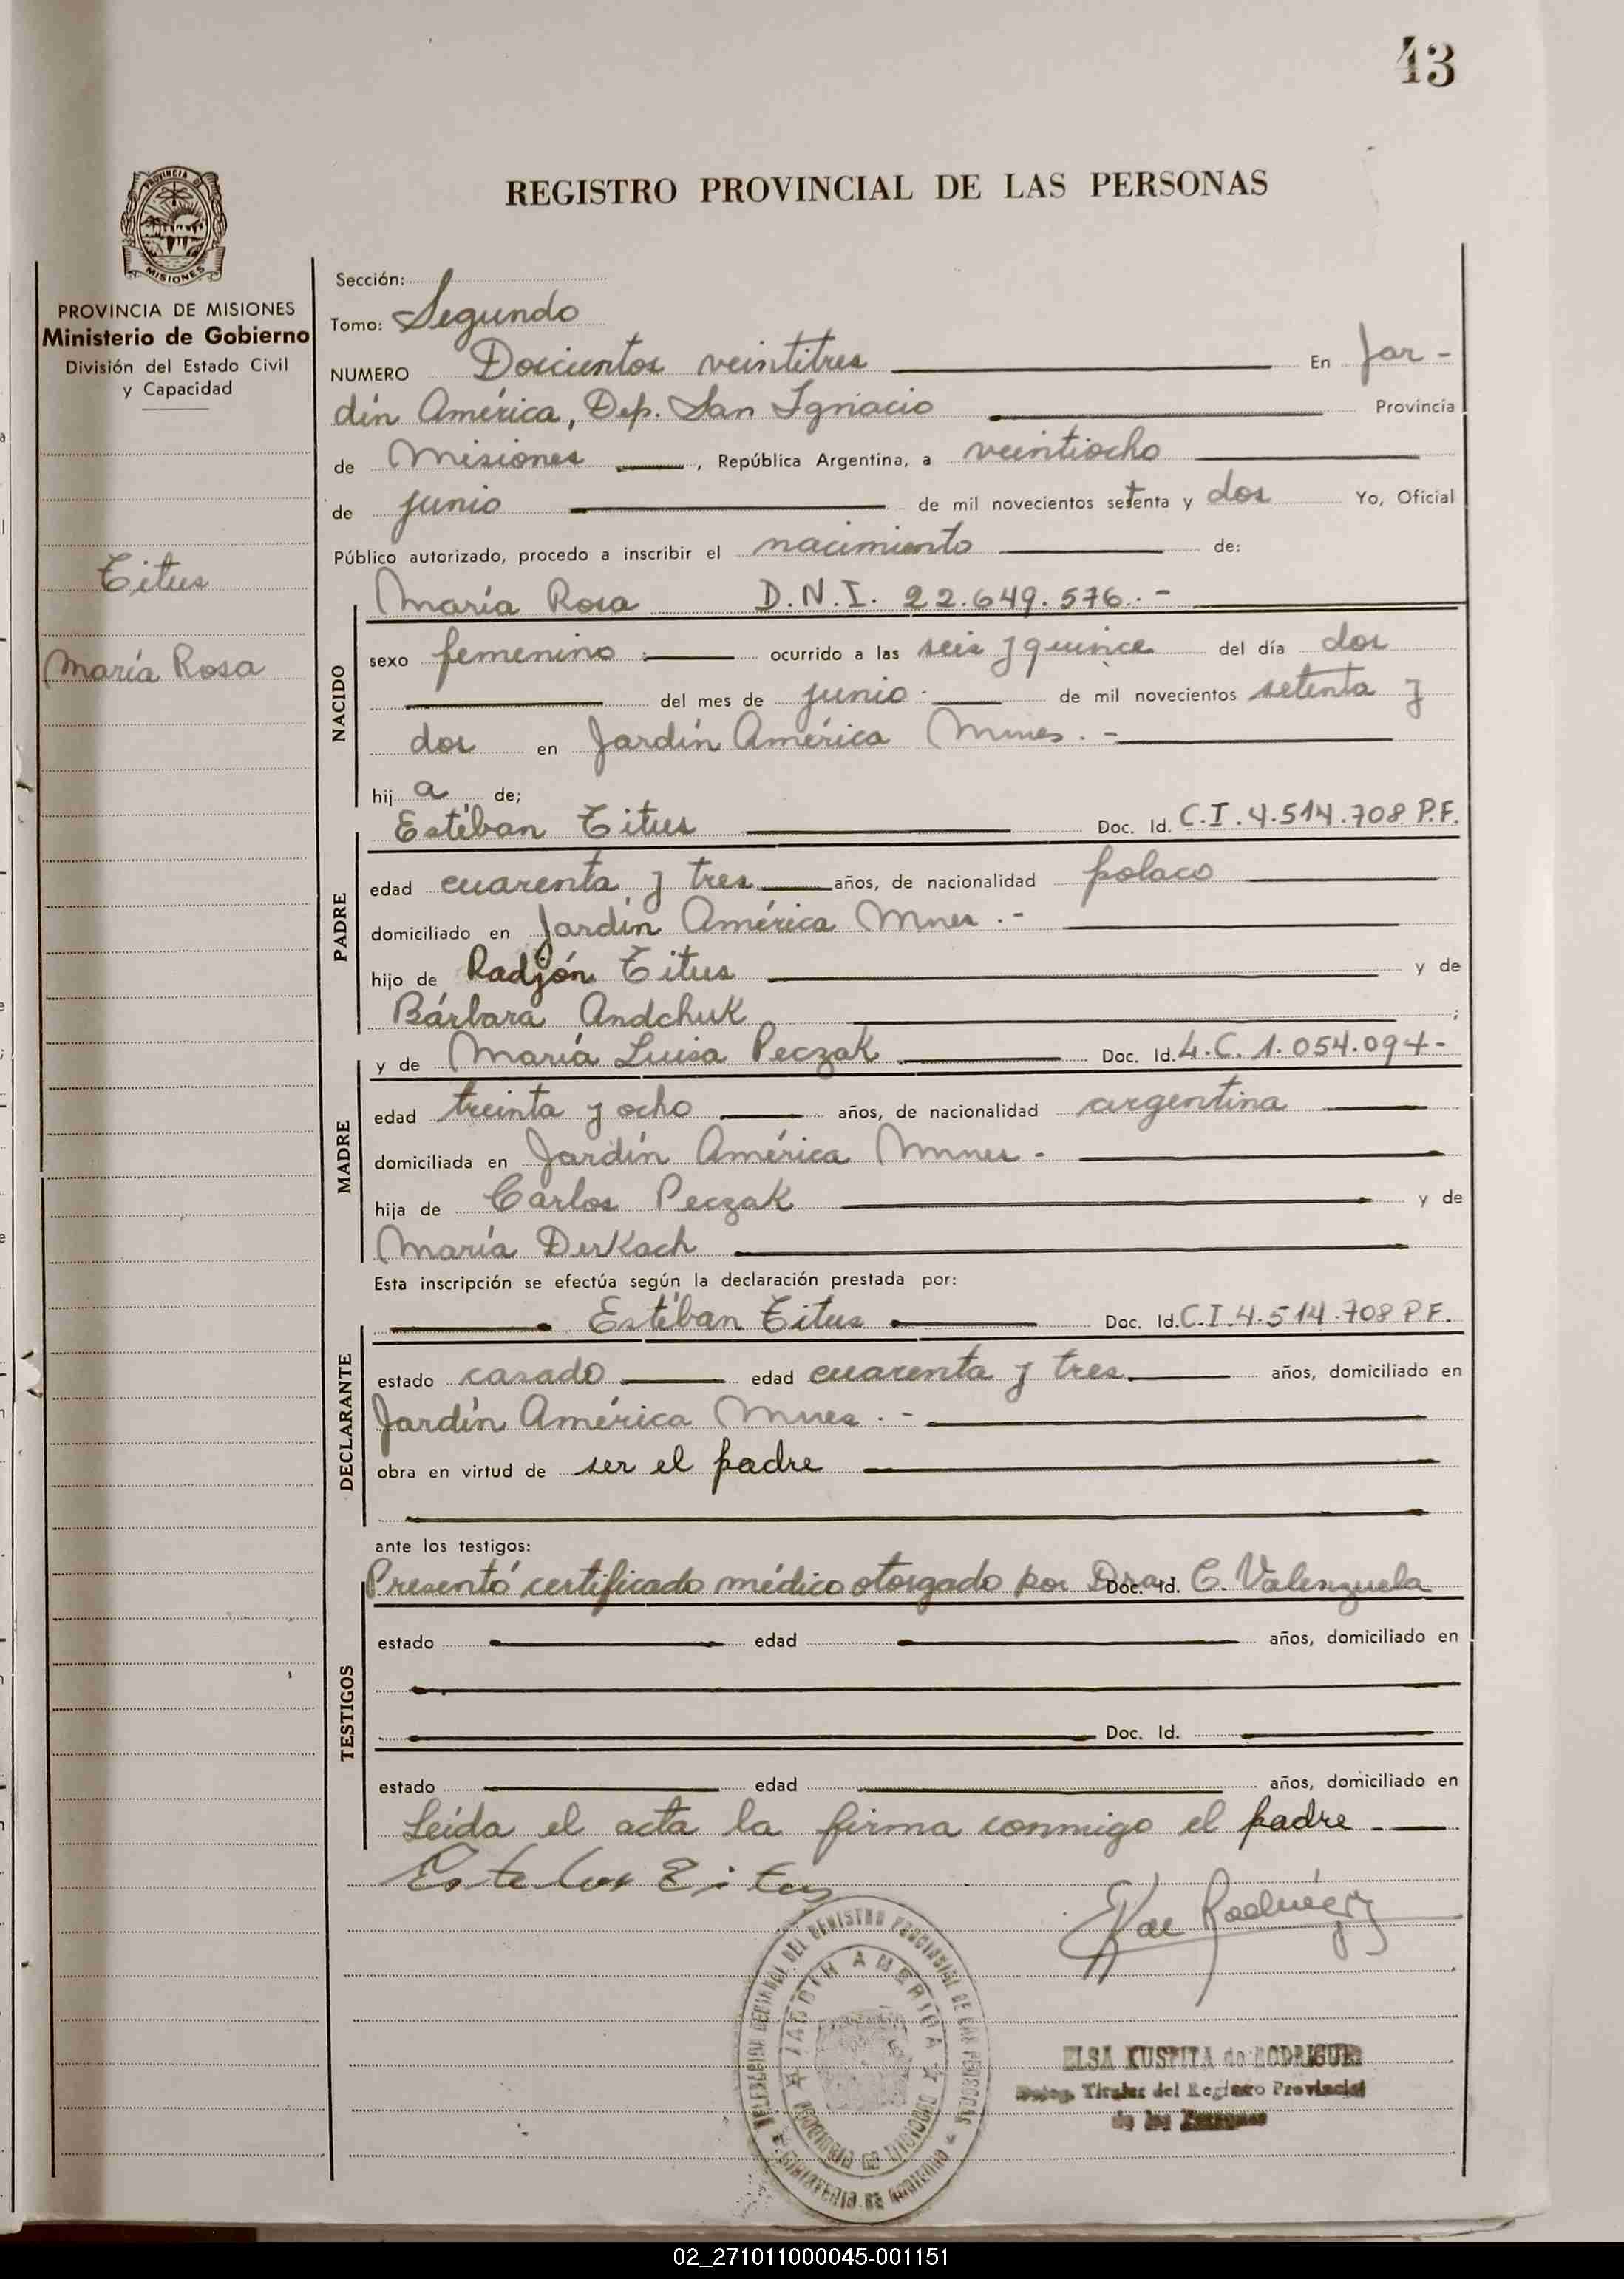 43
REGISTRO PROVINCIAL DE LAS PERSONAS
PROVINCIA DE
MISIONES
PROVINCIA DE MISIONES
Ministerio de Gobierno
División del Estado Civil
y Capacidad
Titus
María Rosa
Sección:
Tomo: Segundo
NUMERO Doscientos veintitres En Jar-
dín América, Dep. San Ignacio Provincia
de Misiones, República Argentina, a veintiocho
de junio de mil novecientos setenta y dos Yo, Oficial
Público autorizado, procedo a inscribir el nacimiento de:
María Rosa D.N.I. 22.649.576.-
NACIDO
sexo femenino ocurrido a las seis y quince del día dos
del mes de junio de mil novecientos setenta y
dos en Jardín América Mnes.-
hij a de;
Estéban Titus Doc. Id. C.I.4.514.708 P.F.
PADRE
edad cuarenta y tres años, de nacionalidad polaco
domiciliado en Jardín América Mnes.-
hijo de Radjón Titus y de
Bárbara Andchuk ;
y de María Luisa Peczak Doc. Id. L.C. 1.054.094-
MADRE
edad treinta y ocho años, de nacionalidad argentina
domiciliada en Jardín América Mnes-
hija de Carlos Peczak y de
María Derkach
Esta inscripción se efectúa según la declaración prestada por:
Estéban Titus Doc. Id. C.I.4.514.708 P.F.
DECLARANTE
estado casado edad cuarenta y tres años, domiciliado en
Jardín América Mnes.-
obra en virtud de ser el padre
ante los testigos:
Presentó certificado médico otorgado por Dra. Doc. Id. C. Valenzuela
TESTIGOS
estado edad años, domiciliado en
Doc. Id.
estado edad años, domiciliado en
Leída el acta la firma conmigo el padre
Esteban Titus
de Rodríguez
JARDIN AMERICA
MINISTERIO DE GOBIERNO
ELSA KUSPITA de RODRIGUEZ
Deleg. Titular del Registro Provincial
de las Personas
02_271011000045-001151